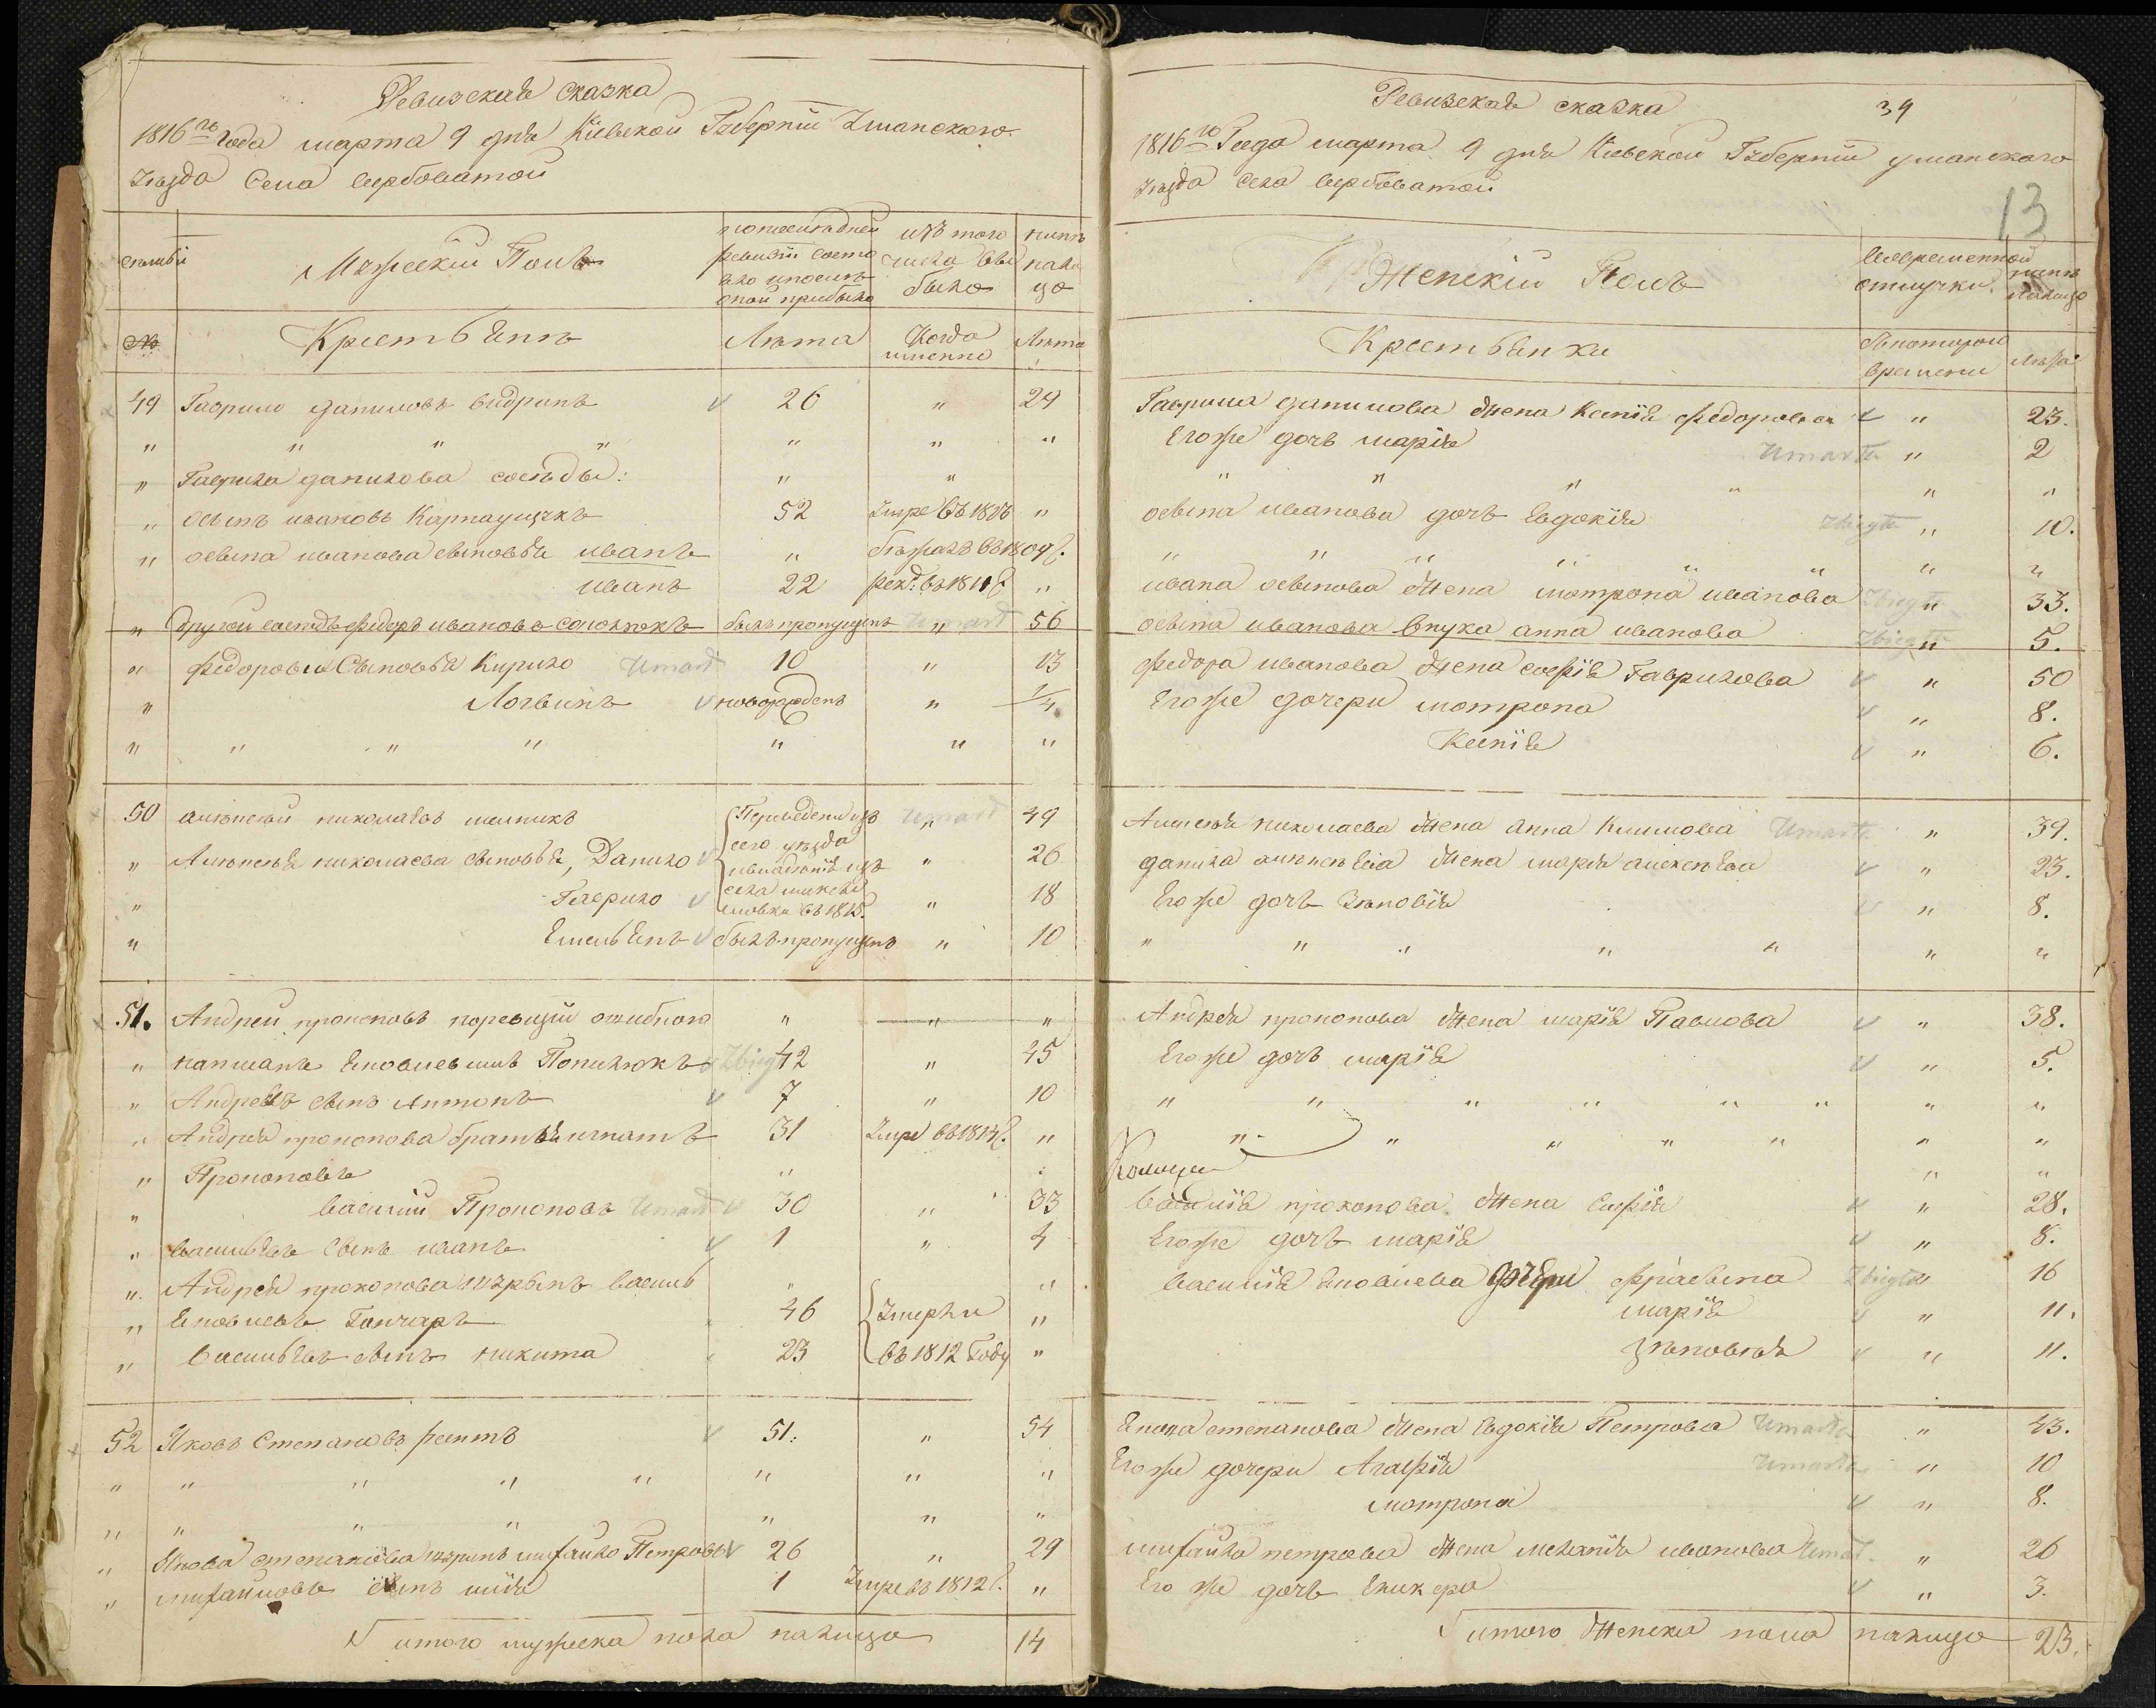 Ревизская сказка
1816го года марта 9 дня Киевской Губернии Уманского
Уезда Села вербоватой
семьи
Мужеский Полъ
по последней
ревизии состо
яло и после
оной прибыло
изъ того
числа вы
было
ныне
нали
цо
№
Крестьяне
Лета
Когда
именно
Лета
49 Гаврило даниловъ 26 " 29
" " " " " " "
" Гаврила данилова соседы: " "
" осипъ ивановъ 52 Умре въ 1813 "
" осипа иванова сыновья иванъ " бежалъ въ 1809г.
иванъ 22 рек: въ 1811г. "
" Другой соседъ федоръ ивановъ былъ пропущенъ Umarł " 56
" федоровы Сыновья Кирило Umarł 10 " 13
" Логвинъ новорожденъ " 1/4
" " " " " " "
50 алексей николаевъ мельникъ Переведены изъ Umarł " 49
" Алексея николаева сыновья, Данило сего уезда " 26
" Гаврило " 18
въ 1815.
" Емельянъ былъ пропущенъ " 10
51. Андрей прокоповъ " " "
" Zbiegł 42 " 45
" Андреевъ сынъ Антонъ 7 " 10
" Андрея прокопова братья игнатъ 31 Умре въ 1814г. "
" Прокоповъ "
" василий Прокоповъ Umarł 30 " 33
" васильевъ сынъ иванъ 1 " 4
" Андрея прокопова шуринъ василь " "
" Яковлевъ Гончаръ 46 Умерли "
" васильевъ сынъ никита 23 въ 1812 Году "
52 Яковъ Степановъ 51: " 54
" " " " " " " "
" " " " " " "
" Якова степанова шуринъ михайло Петровъ 26 " 29
" михайловъ сынъ илия 1 Умре въ 1812г. "
итого мужеска пола налицо 14
Ревизская сказка 39
1816го Года марта 9 дня Киевской Губернии уманского
Уезда села вербоватой
13
Женский Полъ
Во временной
отлучки
ныне
налицо
Крестьянки
Съ котораго
времени
лета
Гаврила данилова жена Ксения федорова " 23.
Его же дочь мария Umarła " 2
" " " " " "
осипа иванова дочь Евдокия Zbiegła " 10.
" " " " " " "
ивана осипова жена мотрона иванова Zbiegła " 33.
осипа иванова внука анна иванова Zbiegła " 5.
федора иванова жена софия Гаврилова " 50
Его же дочери мотрона " 8.
Ксения " 6.
Алексея николаева жена анна Климова Umarła " 39.
данила алексеева жена мария алексеева " 23.
Его же дочь Зеновия " 8.
" " " " " " "
Андрея прокопова жена мария Павлова " 38.
Его же дочь мария " 5.
" " " " " " " "
" " " " " " "
" "
василия прокопова жена София " 28.
Его же дочь мария " 8.
василия яковлева дочери Zbiegła " 16
мария " 11.
Зеновия " 11.
Якова степанова жена Евдокия Петрова Umarła " 43.
Его же дочери Агафия Umarła " 10
мотрона " 8.
михайла петрова жена мелания иванова Umarł. " 26
Его же дочь " 3.
итого женска пола налицо 23.